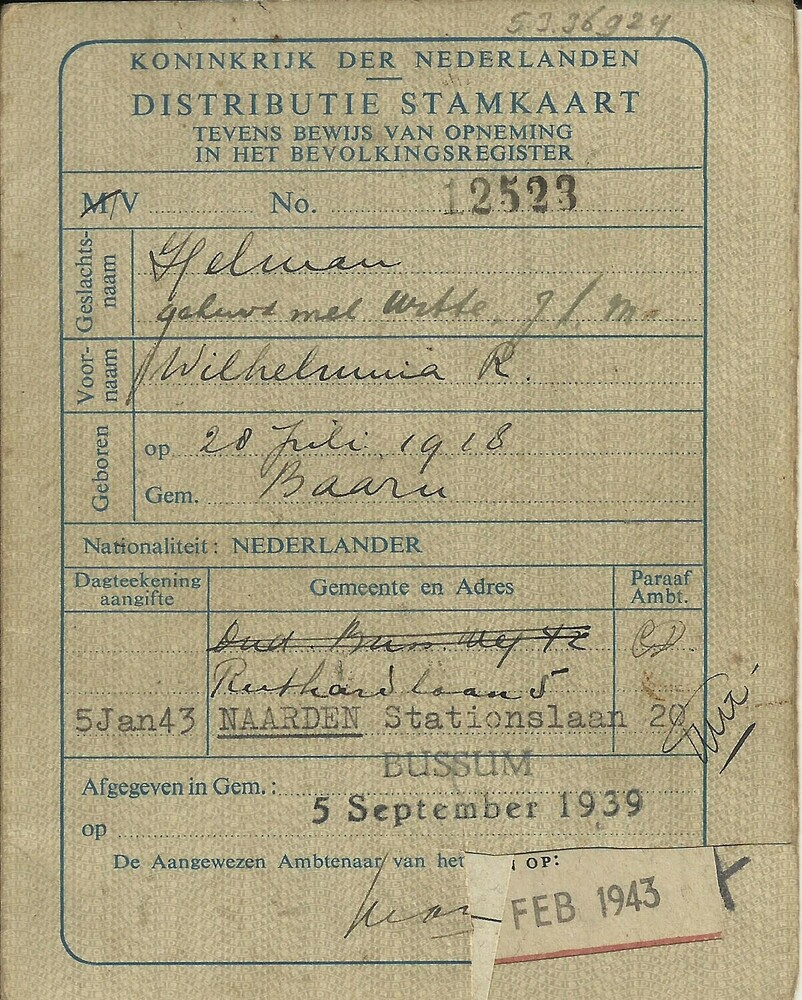 5336924
KONINKRIJK DER NEDERLANDEN
DISTRIBUTIE STAMKAART
TEVENS BEWIJS VAN OPNEMING
IN HET BEVOLKINGSREGISTER
M/V No. 12523
Geslachts-
naam
Helman
gehuwd met Witte J. / m.
Voor-
naam
Wilhelmina R.
Geboren
op 20 Juli 1918
Gem. Baarn
Nationaliteit: NEDERLANDER
Dagteekening
aangifte
Gemeente en Adres
Paraaf
Ambt.
Oud. Buss. Weg 42
Ruthardlaan 5
5Jan43 NAARDEN Stationslaan 20
BUSSUM
Afgegeven in Gem.:
5 September 1939
op
De Aangewezen Ambtenaar van het
OP:
FEB 1943